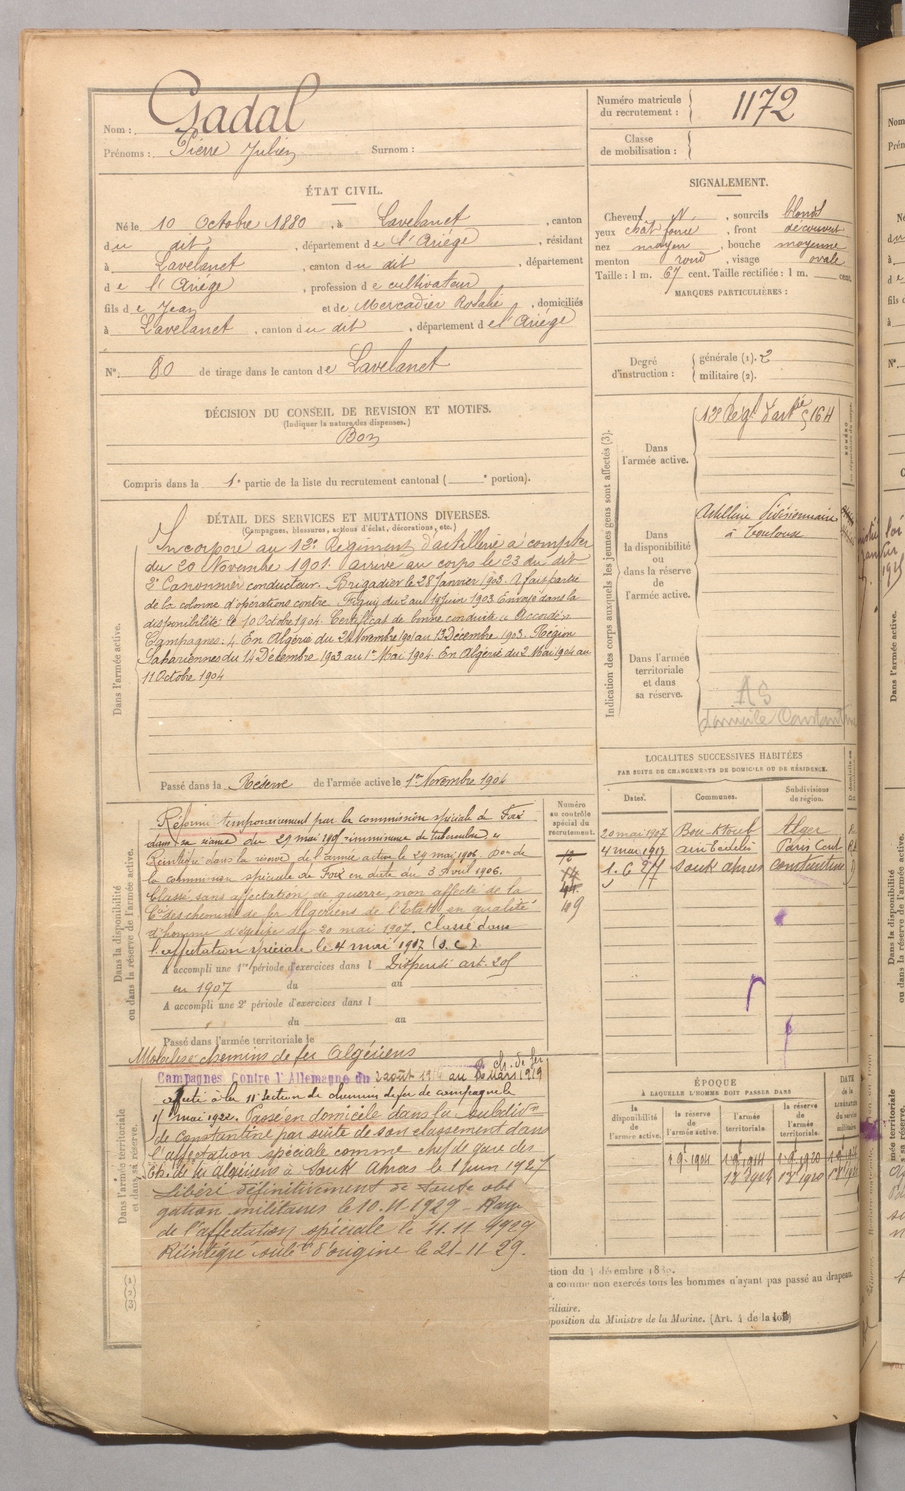 Nom : Gadal
Prénoms : Pierre Julien Surnom :
Numéro matricule du recrutement : 1172
Classe de mobilisation :
ÉTAT CIVIL.
Né le 10 Octobre 1880, à Lavelanet, canton
du dit, département de l'Ariège, résidant
à Lavelanet, canton du dit, département
de l'Ariège, profession de cultivateur
fils de Jean et de Mercadier Rosalie, domiciliés
à Lavelanet, canton du dit, département de l'Ariège
N° 80 de tirage dans le canton de Lavelanet
SIGNALEMENT.
Cheveux, sourcils blonds
yeux chât foncé, front découvert
nez moyen, bouche moyenne
menton rond, visage ovale
Taille : 1 m. 67 cent. Taille rectifiée : 1 m. cent.
MARQUES PARTICULIÈRES :
Degré d'instruction : générale (1). 2
militaire (2).
DÉCISION DU CONSEIL DE REVISION ET MOTIFS.
(Indiquer la nature des dispenses.)
Bon
Compris dans la 1e partie de la liste du recrutement cantonal ( e portion).
DÉTAIL DES SERVICES ET MUTATIONS DIVERSES.
(Campagnes, blessures, actions d'éclat, décorations, etc.)
Dans l'armée active.
Incorporé au 12e Régiment d'artillerie à compter
du 20 Novembre 1901. Arrivé au corps le 23 du dit
2e Canonnier conducteur. Brigadier le 28 Janvier 1903. A fait partie
de la colonne d'opérations contre Figuig du 2 au 19 Juin 1903. Envoyé dans la
disponibilité le 10 Octobre 1904. Certificat de bonne conduite "Accordé"
Campagnes. En Algérie du Novembre 1901 au 13 Décembre 1903. Région
Sahariennes du 14 Décembre 1903 au 1er Mai 1904. En Algérie du 2 Mai 1904 au
11 Octobre 1904
Passé dans la Réserve de l'armée active le 1er Novembre 1904
Indication des corps auxquels les jeunes gens sont affectés (3).
Dans l'armée active.
12e Regt d'artie 164
Dans la disponibilité ou dans la réserve de l'armée active.
Artillerie divisionnaire
à Toulouse
Dans l'armée territoriale et dans sa réserve.
AS
domicile Constantine
Dans la disponibilité ou dans la réserve de l'armée active.
Numéro au contrôle spécial du recrutement.
49
Réformé temporairement par la commission spéciale de Foix
dans sa séance du 29 mai 1905 imminence de tuberculose
Réintégré dans la réserve de l'armée active le 29 mai 1906. Don de
la commission spéciale de Foix en date du 3 Avril 1906.
Classé sans affectation de guerre, non affecté de la
Cie des chemins de fer Algériens de l'Etat en qualité
d'homme d'équipe du 20 mai 1907. Classé dans
l'affectation spéciale le 4 mai 1917 (S.C.)
A accompli une 1re période d'exercices dans l Dispensé art. 205
en 1907 du au
A accompli une 2e période d'exercices dans l
du au
Passé dans l'armée territoriale le
Mobilisé chemins de fer Algériens
Dans l'armée territoriale et dans sa réserve.
Campagnes Contre l'Allemagne du 2 août 1914 au Mars 1919
Ch. de fer
affecté à la 11e Section de chemin de fer de campagne le
mai 1922. Passé en domicile dans la subdivon
de Constantine par suite de son classement dans
l'affectation spéciale comme chef de gare des
Algériens à Souk Ahras le 1 juin 1927
Libéré définitivement de toute obli
gation militaires le 10.11.1929 - Rayé
de l'affectation spéciale le 11.11.1929
Réintégré d'origine le 21-11 29.
LOCALITES SUCCESSIVES HABITÉES
PAR SUITE DE CHANGEMENTS DE DOMICILE OU DE RÉSIDENCE.
Dates. Communes. Subdivisions de région.
20 mai 1907 Bou-Ktoub Alger
4 mai 1917 Paris Cent
1. 6 27 Souk ahras Constantine
ÉPOQUE
À LAQUELLE L'HOMME DOIT PASSER DANS
la disponibilité de l'armée active. la réserve de l'armée active. l'armée territoriale. la réserve de l'armée territoriale. DATE de la LIBÉRATION du service militaire.
1.9.1904 1.9.1914 1.9.1920
ction du 4 décembre 1889.
a comme non exercés tous les hommes n'ayant pas passé au drapeau
xiliaire.
sposition du Ministre de la Marine. (Art. 4 de la loi)
(1)
(2)
(3)